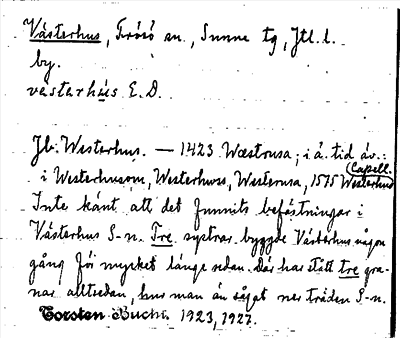 Västerhus, Frösö sn., Sunne tg, Jtl. l.
by.
västarhùs E.D.
Jb: Westerhus. — 1423 Wæstrusa; i ä. tid äv.:
(Capell.
i Westerhusom, Westerhuss, Westerusa, 1575 Westerhus
Inte känt att det funnits befästningar i
Västerhus S-n. Tre systrar byggde Västerhus någon
gång för mycket länge sedan. Där har stått tre gra-
nar alltsedan, hur man än sågat ner träden S-n.
Torsten Bucht 1923, 1927.